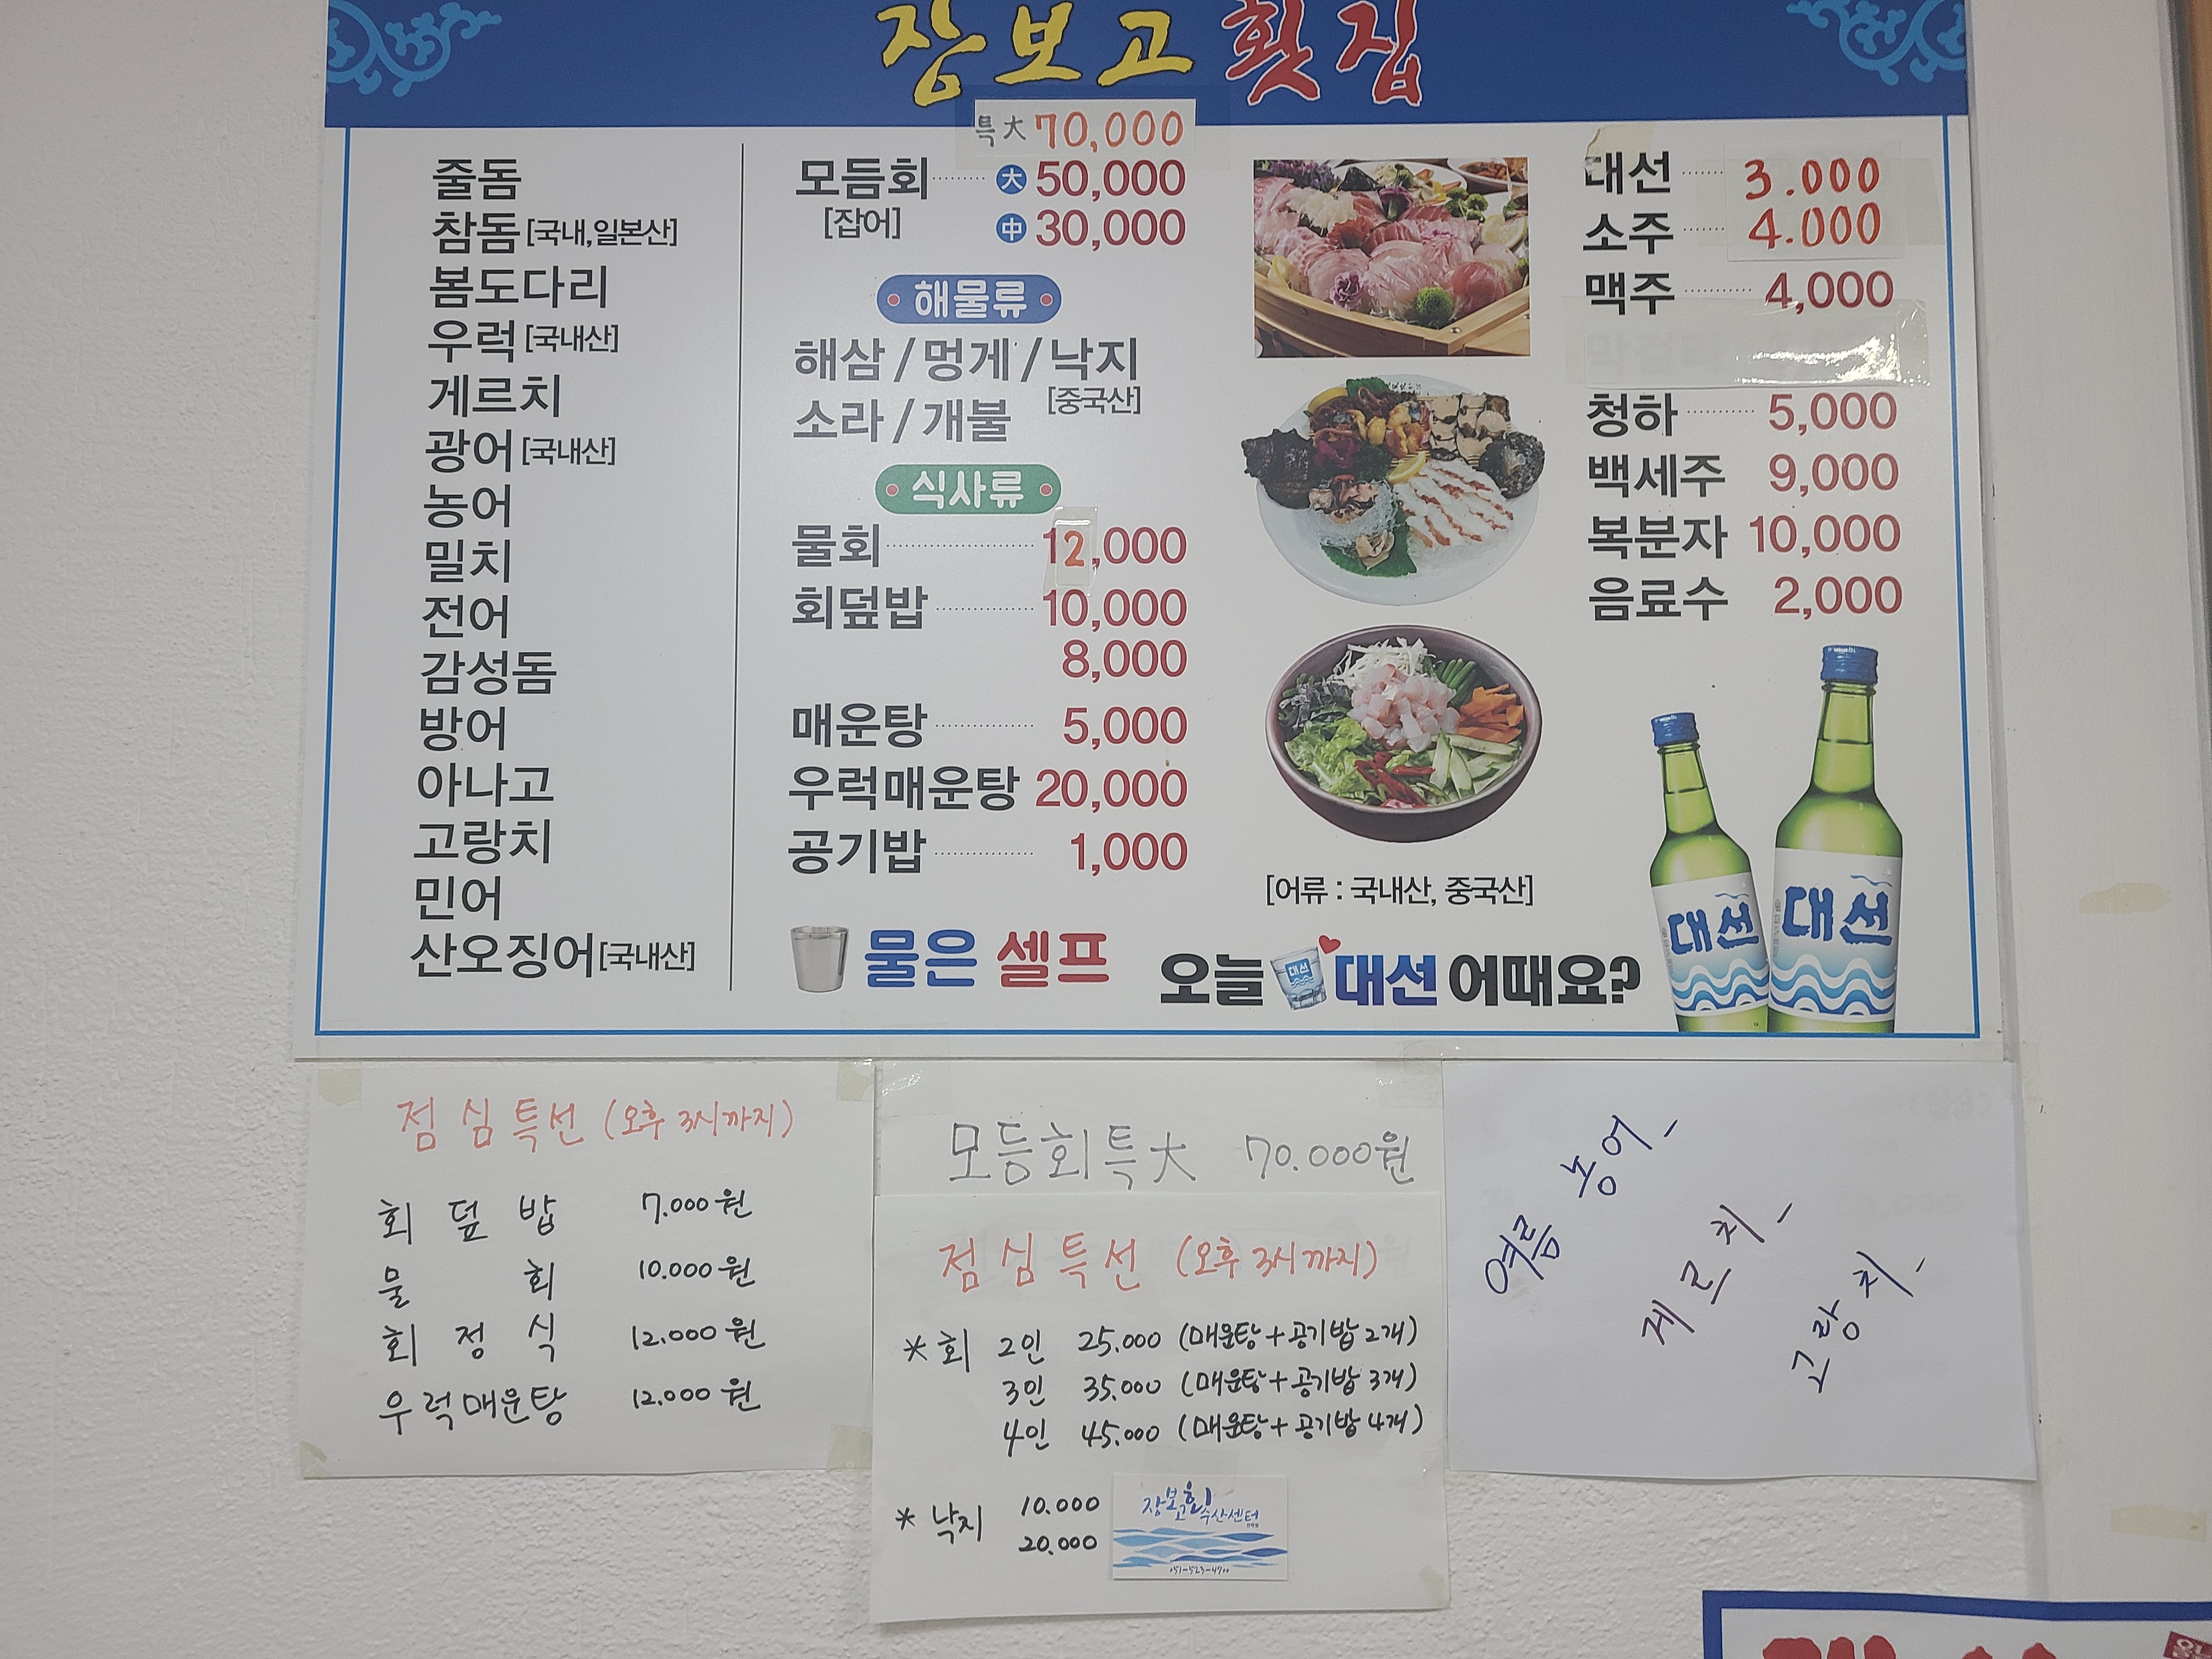 장보고횟집
줄돔
참돔[국내,일본산]
봄도다리
우럭[국내산]
게르치
광어[국내산]
농어
밀치
전어
감성돔
방어
아나고
고랑치
민어
산오징어[국내산]
특大 70,000
모듬회 大 50,000
[잡어] 中 30,000
해물류
해삼/멍게/낙지
[중국산]
소라/개불
식사류
물회 12,000
회덮밥 10,000
8,000
매운탕 5,000
우럭매운탕 20,000
공기밥 1,000
물은 셀프
[어류 : 국내산, 중국산]
오늘 대선 어때요?
대선
대선 3.000
소주 4.000
맥주 4,000
청하 5,000
백세주 9,000
복분자 10,000
음료수 2,000
대선
대선
점심특선 (오후 3시까지)
회덮밥 7.000원
물회 10.000원
회정식 12.000원
우럭매운탕 12.000원
모듬회특大 70.000원
점심특선 (오후 3시까지)
*회 2인 25.000 (매운탕+공기밥 2개)
3인 35.000 (매운탕+공기밥 3개)
4인 45.000 (매운탕+공기밥 4개)
*낙지 10.000
20.000
장보고회수산센터
여름 농어-
게르치-
고랑치-